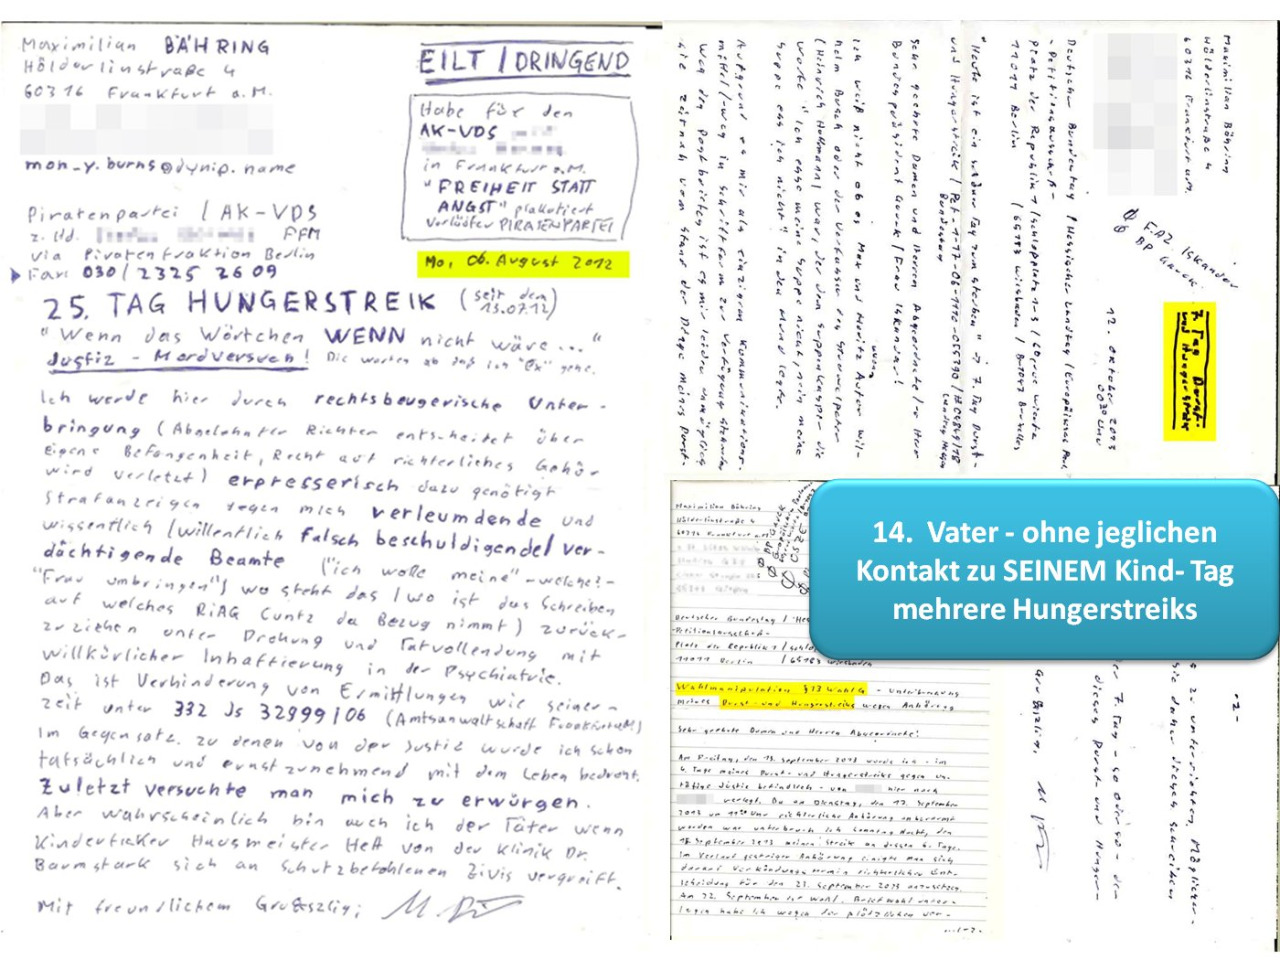 Maximilian BÄHRING
Hölderlinstraße 4
60316 Frankfurt a.M.
mon_y.burns@dynip.name
EILT / DRINGEND
Habe für den
AK-VDS
in Frankfurt a.M.
"FREIHEIT STATT
ANGST" plakatiert
Verläßter PIRATENPARTEI
Mo, 06. August 2012
Piratenpartei / AK-VDS
z. Hd. FFM
via Piratenfraktion Berlin
Fax: 030/2325 2609
25. TAG HUNGERSTREIK (seit dem
13.07.12)
"Wenn das Wörtchen WENN nicht wäre..."
Justiz - Mordversuch! Die warten ab daß ich "Ex" gehe.
Ich werde hier durch rechtsbeugerische Unter-
bringung (Abgelehnter Richter entscheitet über
eigene Befangenheit, Recht auf richterliches Gehör
wird verletzt) erpresserisch dazu genötigt
Strafanzeigen gegen mich verleumdende und
wissentlich/willentlich falsch beschuldigende/ver-
dächtigende Beamte ("ich wolle meine" -welche?-
"Frau umbringen") wo steht das / wo ist das Schreiben
auf welches RiAG Cuntz da Bezug nimmt) zurück-
zuziehen unter Drohung und Tatvollendung mit
willkürlicher Inhaftierung in der Psychiatrie.
Das ist Verhinderung von Ermittlungen wie seiner-
zeit unter 332 Js 32999/06 (Amtsanwaltschaft Frankfurt a.M)
Im Gegensatz zu denen von der Justiz wurde ich schon
tatsächlich und ernst zunehmend mit dem Leben bedroht.
Zuletzt versuchte man mich zu erwürgen.
Aber wahrscheinlich bin auch ich der Täter wenn
Kinderficker Hausmeister Heft von der Klinik Dr.
Baumstark sich an Schutzbefohlenen Zivis vergreift.
Mit freundlichem Gru&szlig;
Maximilian Bähring
Hölderlinstraße 4
60316 Frankfurt a.M.
Ø FAZ Iskandar
Ø BP Gauck
7. Tag Durst-
und Hungerstreik
12. Oktober 2013
00:30 Uhr
Deutscher Bundestag / Hessischer Landtag / Europäisches Parl.
- Petitionsausschuß -
Platz der Republik 1 / Schloßplatz 1-3 / 60 rue Wiertz
11011 Berlin / 65183 Wiesbaden / B-1047 Brüssel
"Heute ist ein guter Tag zum sterben" -> 7. Tag Durst-
und Hungerstreik
Bundestag Landtag Hessen
Sehr geehrte Damen und Herren Abgeordnete/r Herr
Bundespräsident Gauck / Frau Iskandar!
Ich weiß nicht ob es Max und Moritz Autor Wil-
helm Busch oder der Verfasser des Struwwelpeter
(Heinrich Hoffmann) war, der den Suppenkasper die
Worte "Ich esse meine Suppe nicht, nein meine
Suppe ess ich nicht" in den Mund legte.
Aufgrund es mir als einzigem Kommunikations-
mittel/-weg in Schriftform zur Verfügung stehenden
Weg des Postbriefes ist es mir leider unmöglich
Sie zeitnah vom Stand der Dinge meines Durst-
-2-
zu unterrichten. Möglicher-
Sie daher dieses Schreiben
7. Tag - so oder so - dem
dieses Durst- und Hunger-
Gru&szlig;
Maximilian Bähring
Hölderlinstraße 4
60316 Frankfurt a.M
Ø BP Gauck
Ø OSZE
Deutscher Bundestag / Hes
-Petitionsausschuß-
Platz der Republik 1 / Schloß
11011 Berlin / 65183 Wiesbaden
Wahlmanipulation §13 WahlG - Unterbrechung
Meines Durst- und Hungerstreiks wegen Anhörung
Sehr geehrte Damen und Herren Abgeordnete!
Am Freitag, den 13. September 2013 wurde ich - im
4. Tage meines Durst- und Hungerstreiks gegen un-
tätige Justiz befindlich - von hier nach
verlegt. Da am Dienstag, den 17. September
2013 um Uhr richterliche Anhörung anberaumt
worden war unterbrach ich Sonntag Nacht, den
September 2013 meinen Streik an dessen 6. Tage.
Im Verlauf gestriger Anhörung einigte man sich
darauf Verkündungstermin richterlicher Ent-
scheidung für den 23. September 2013 anzusetzen.
Am 22. September ist Wahl. Briefwahl unter-
lagen habe ich wegen der plötzlichen Ver-
14. Vater - ohne jeglichen
Kontakt zu SEINEM Kind- Tag
mehrere Hungerstreiks